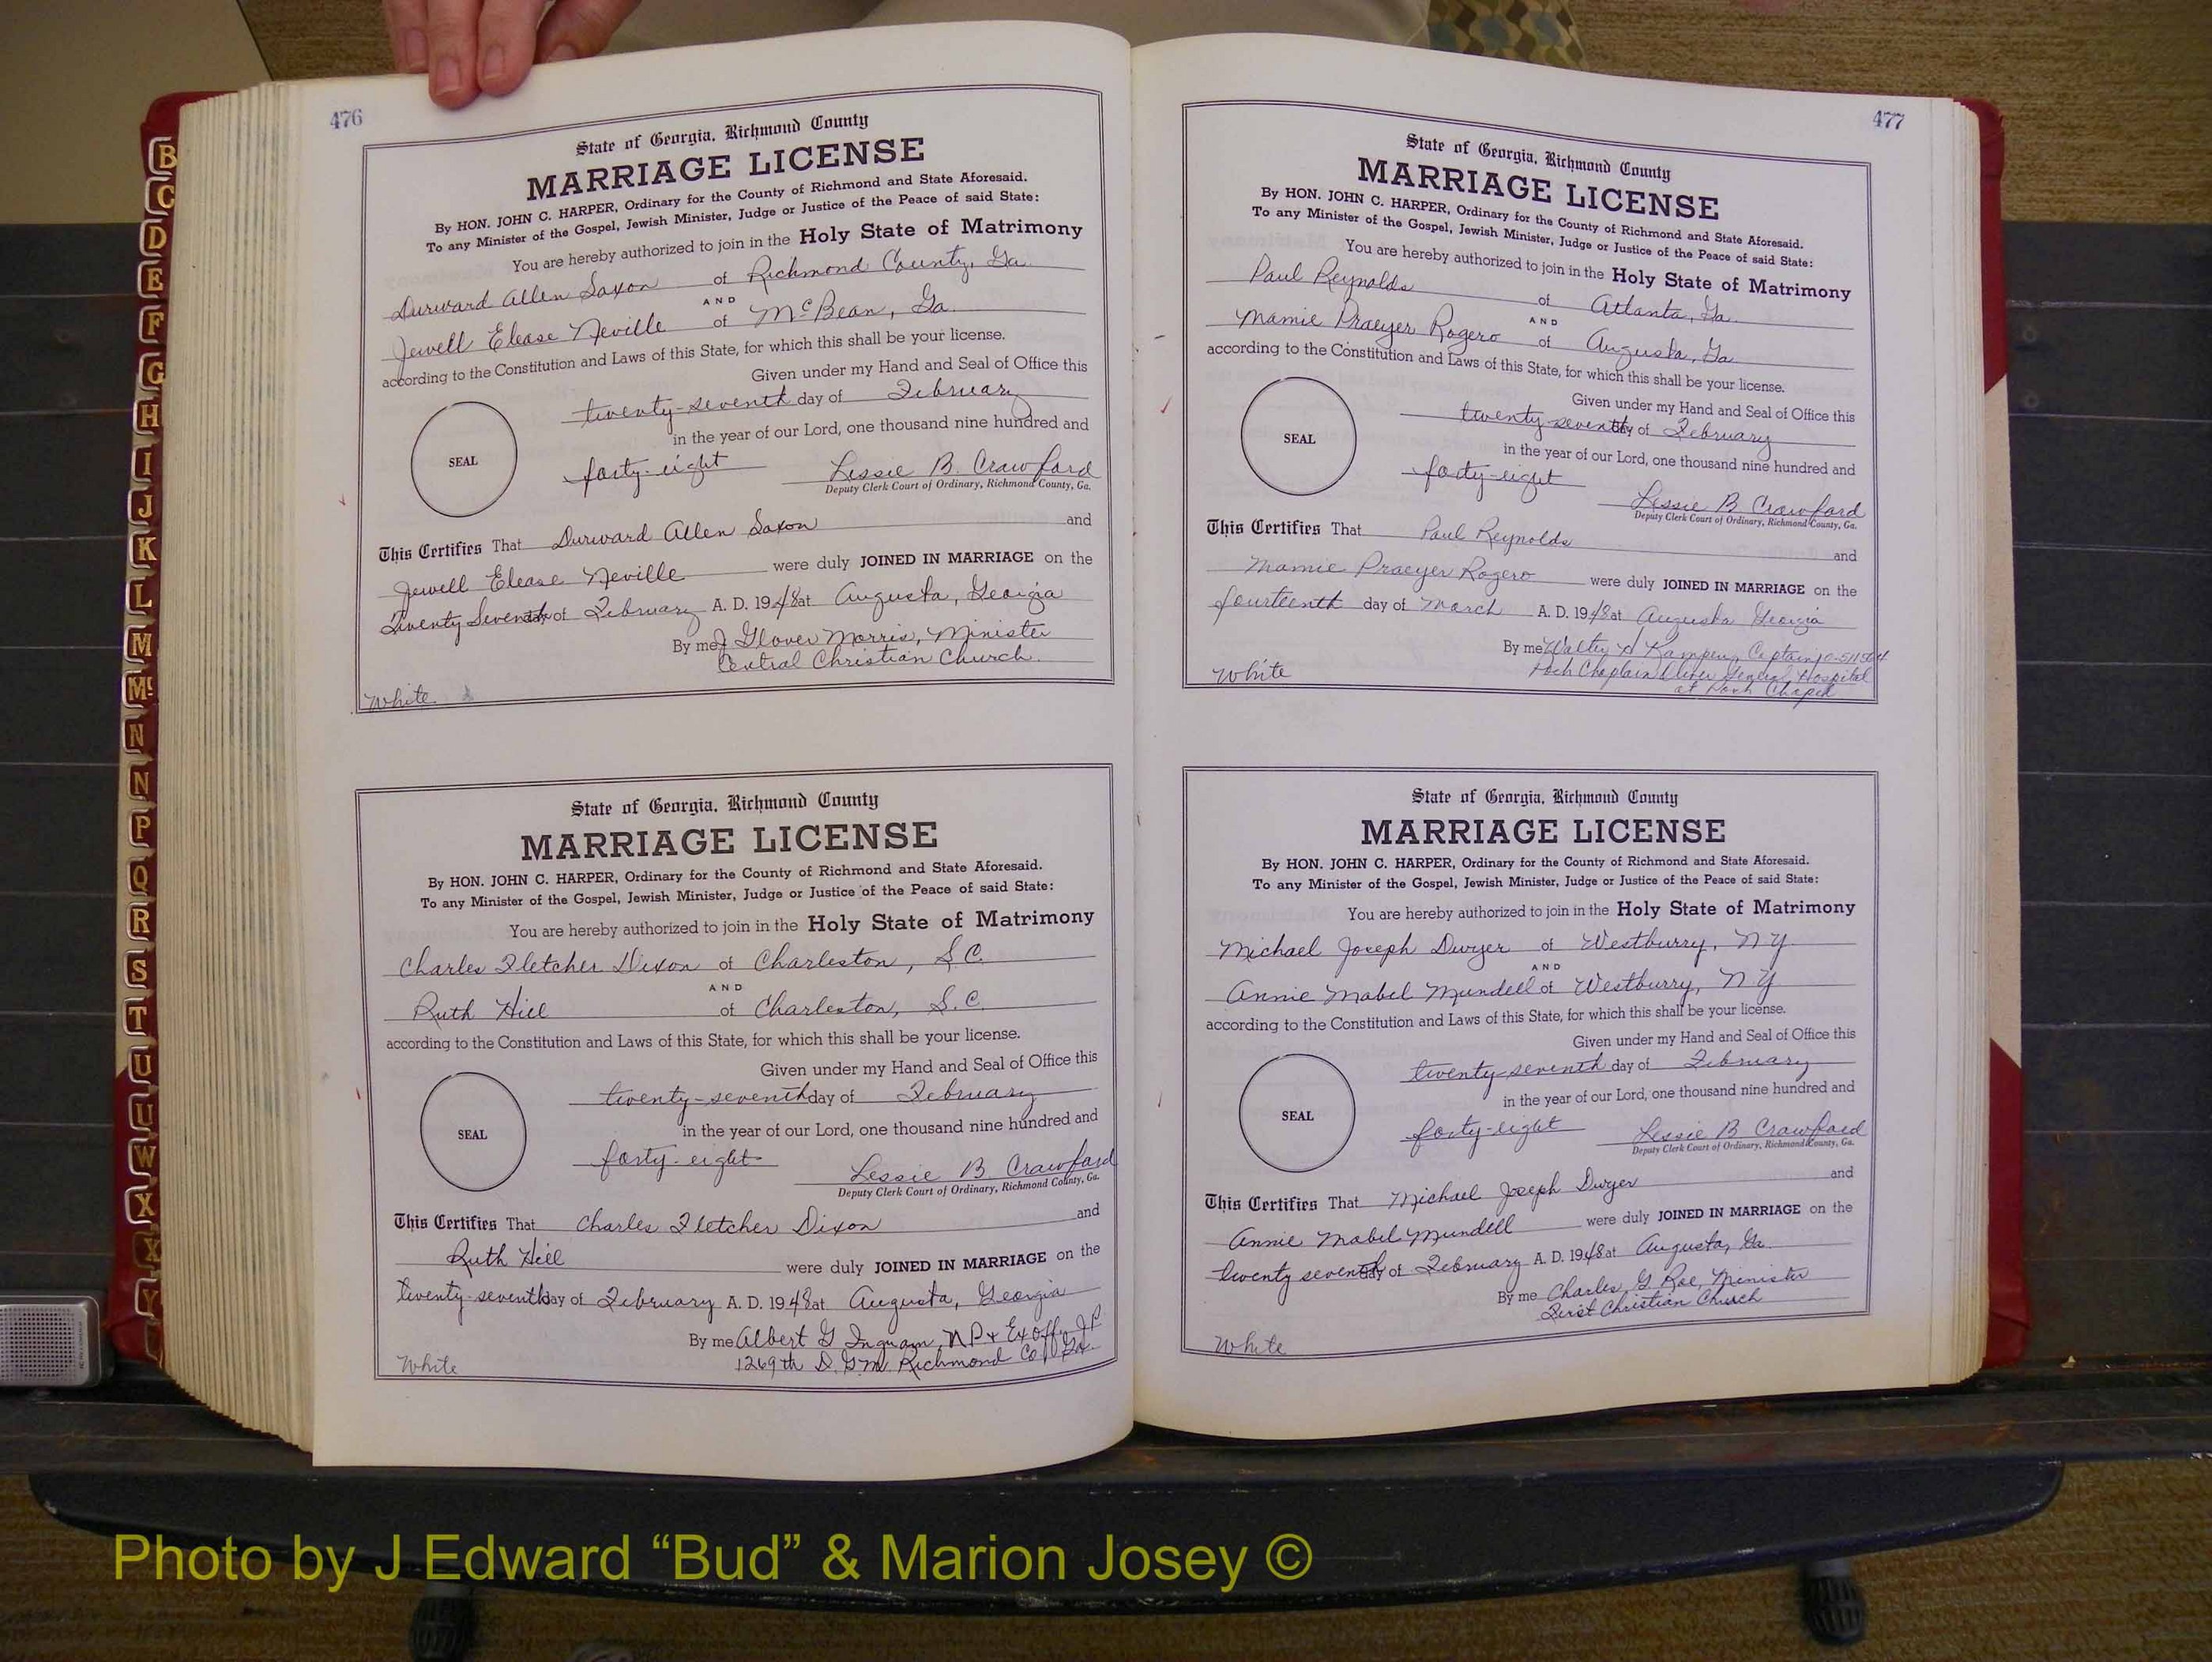 476
State of Georgia, Richmond County
MARRIAGE LICENSE
By HON. JOHN C. HARPER, Ordinary for the County of Richmond and State Aforesaid.
To any Minister of the Gospel, Jewish Minister, Judge or Justice of the Peace of said State:
You are hereby authorized to join in the Holy State of Matrimony
Durward Allen Saxon of Richmond County, Ga.
AND
Jewell Elease Neville of McBean, Ga.
according to the Constitution and Laws of this State, for which this shall be your license.
Given under my Hand and Seal of Office this
twenty-seventh day of February
in the year of our Lord, one thousand nine hundred and
SEAL
forty-eight Lessie B. Crawford
Deputy Clerk Court of Ordinary, Richmond County, Ga.
This Certifies That Durward Allen Saxon and
Jewell Elease Neville were duly JOINED IN MARRIAGE on the
Twenty Seventh day of February A. D. 1948 at Augusta, Georgia
By me J Glover Morris, Minister
Central Christian Church.
White
State of Georgia, Richmond County
MARRIAGE LICENSE
By HON. JOHN C. HARPER, Ordinary for the County of Richmond and State Aforesaid.
To any Minister of the Gospel, Jewish Minister, Judge or Justice of the Peace of said State:
You are hereby authorized to join in the Holy State of Matrimony
Charles Fletcher Dixon of Charleston, S.C.
AND
Ruth Hill of Charleston, S.C.
according to the Constitution and Laws of this State, for which this shall be your license.
Given under my Hand and Seal of Office this
twenty-seventh day of February
in the year of our Lord, one thousand nine hundred and
SEAL
forty-eight Lessie B. Crawford
Deputy Clerk Court of Ordinary, Richmond County, Ga.
This Certifies That Charles Fletcher Dixon and
Ruth Hill were duly JOINED IN MARRIAGE on the
twenty-seventh day of February A. D. 1948 at Augusta, Georgia
By me Albert G Ingram, NP & Ex Off. JP
1269th D. G.M. Richmond Co Ga.
White
477
State of Georgia, Richmond County
MARRIAGE LICENSE
By HON. JOHN C. HARPER, Ordinary for the County of Richmond and State Aforesaid.
To any Minister of the Gospel, Jewish Minister, Judge or Justice of the Peace of said State:
You are hereby authorized to join in the Holy State of Matrimony
Paul Reynolds of Atlanta, Ga.
AND
Mamie Praeyer Rogero of Augusta, Ga.
according to the Constitution and Laws of this State, for which this shall be your license.
Given under my Hand and Seal of Office this
twenty-seventh day of February
in the year of our Lord, one thousand nine hundred and
SEAL
forty-eight
Lessie B Crawford
Deputy Clerk Court of Ordinary, Richmond County, Ga.
This Certifies That Paul Reynolds and
Mamie Praeyer Rogero were duly JOINED IN MARRIAGE on the
fourteenth day of March A. D. 1948 at Augusta Georgia
By me Walter H Captain
Chaplain Oliver General Hospital
at Chapel
White
State of Georgia, Richmond County
MARRIAGE LICENSE
By HON. JOHN C. HARPER, Ordinary for the County of Richmond and State Aforesaid.
To any Minister of the Gospel, Jewish Minister, Judge or Justice of the Peace of said State:
You are hereby authorized to join in the Holy State of Matrimony
Michael Joseph Dwyer of Westburry, N.Y.
AND
Annie Mabel Mundell of Westburry, N.Y.
according to the Constitution and Laws of this State, for which this shall be your license.
Given under my Hand and Seal of Office this
twenty-seventh day of February
in the year of our Lord, one thousand nine hundred and
SEAL
forty-eight Lessie B Crawford
Deputy Clerk Court of Ordinary, Richmond County, Ga.
This Certifies That Michael Joseph Dwyer and
Annie Mabel Mundell were duly JOINED IN MARRIAGE on the
twenty seventh day of February A. D. 1948 at Augusta, Ga.
By me Charles G Roe, Minister
First Christian Church
White
B
C
D
E
F
G
H
I
J
K
L
M
Mc
N
N
P
Q
R
S
T
U
U
W
X
X
Y
Photo by J Edward “Bud” & Marion Josey ©